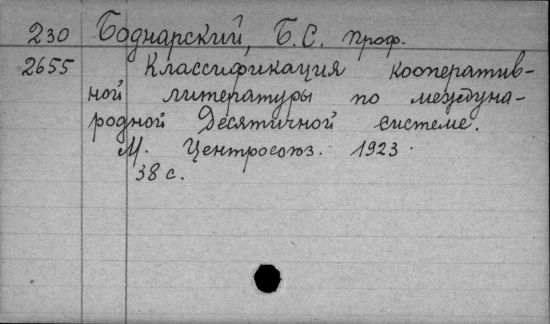 230 Боднарский, Б.С. проф.
2655 Классификация кооператив-
ной литературы по междуна-
родной Десятичной системе.
М. Центросоюз. 1923.
38 с.